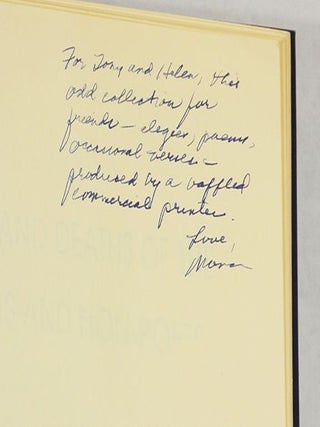 For Tony and Helen, this
odd collection for
friends – elegies, poems,
occasional verses –
produced by a baffled
commercial printer.
Love,
Mona